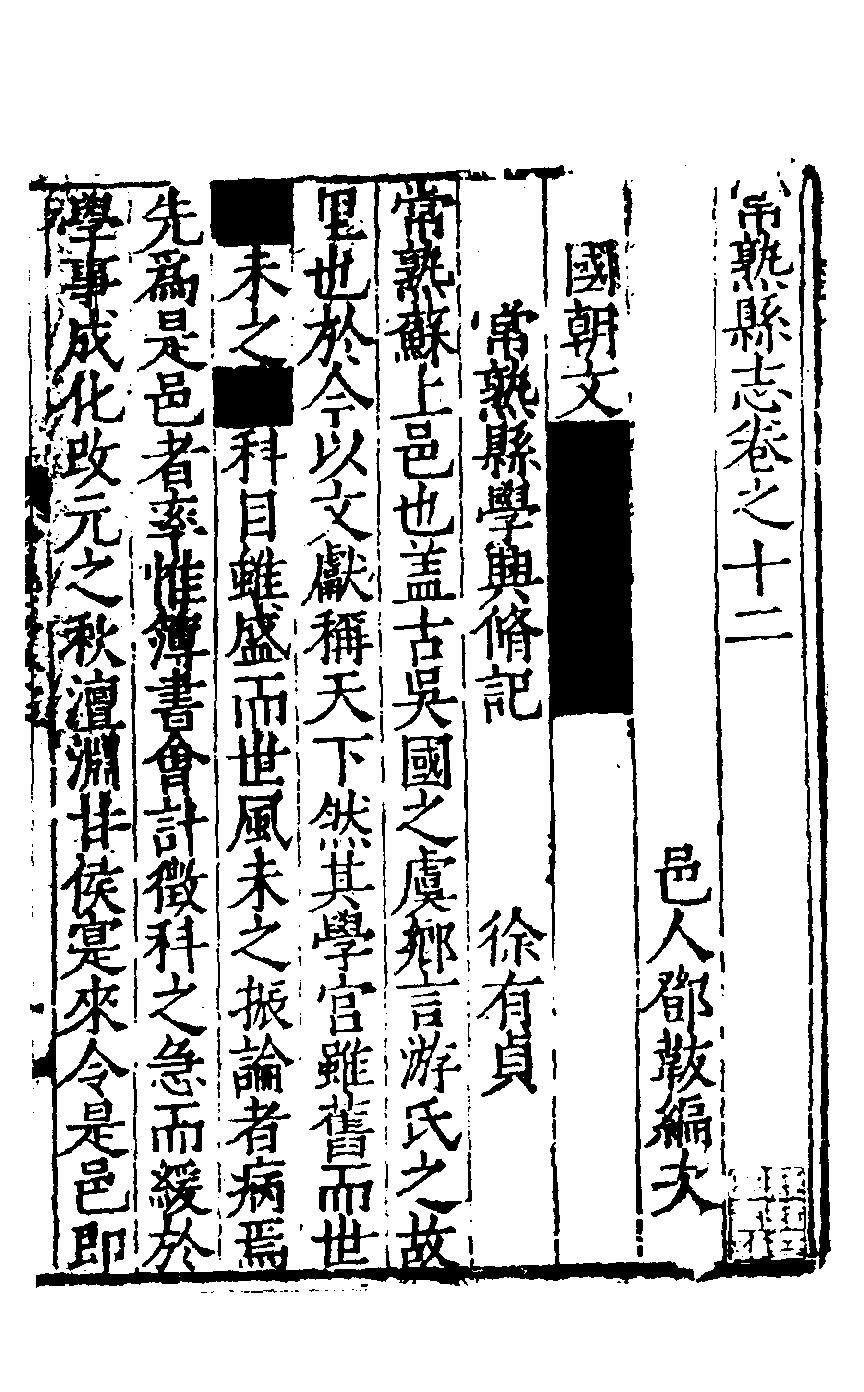 常熟縣志卷之十二
邑人鄧韍編次
國朝文
常熟縣學興脩記 徐有貞
常熟蘇上邑也盖古吳國之虞鄉言游氏之故
里也於今以文獻稱天下然其學官雖舊而世
未之科目雖盛而世風未之振論者病焉
先爲是邑者率惟簿書會計徵科之急而緩於
學事成化改元之秋澶淵甘侯寔來令是邑即